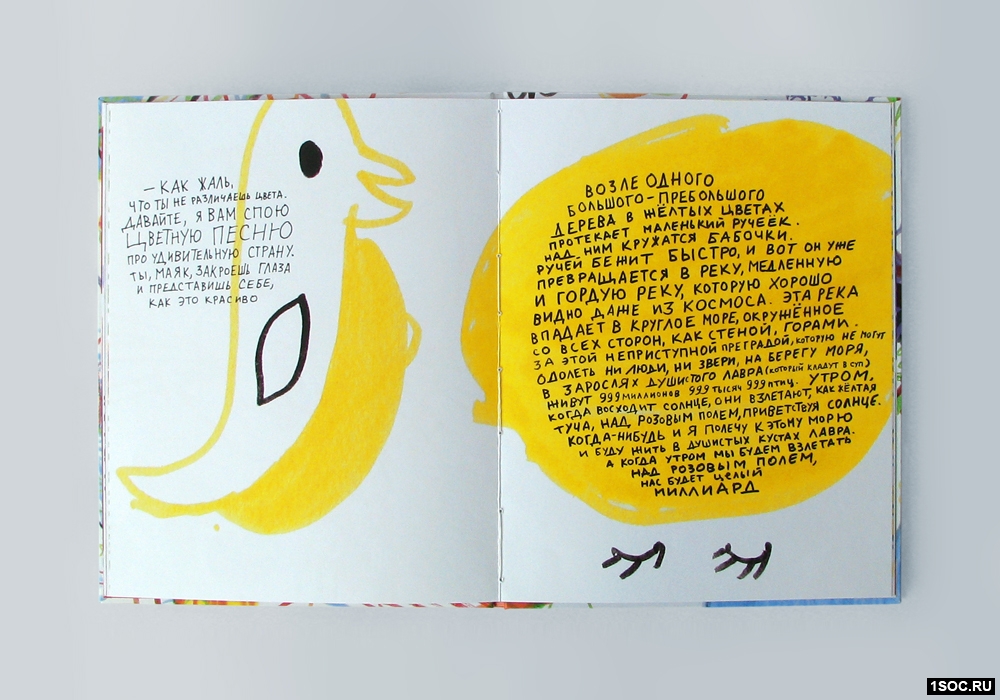 — КАК ЖАЛЬ,
ЧТО ТЫ НЕ РАЗЛИЧАЕШЬ ЦВЕТА.
ДАВАЙТЕ, Я ВАМ СПОЮ
ЦВЕТНУЮ ПЕСНЮ
ПРО УДИВИТЕЛЬНУЮ СТРАНУ.
ТЫ, МАЯК, ЗАКРОЕШЬ ГЛАЗА
И ПРЕДСТАВИШЬ СЕБЕ,
КАК ЭТО КРАСИВО
ВОЗЛЕ ОДНОГО
БОЛЬШОГО-ПРЕБОЛЬШОГО
ДЕРЕВА В ЖЁЛТЫХ ЦВЕТАХ
ПРОТЕКАЕТ МАЛЕНЬКИЙ РУЧЕЁК.
НАД НИМ КРУЖАТСЯ БАБОЧКИ.
РУЧЕЙ БЕЖИТ БЫСТРО, И ВОТ ОН УЖЕ
ПРЕВРАЩАЕТСЯ В РЕКУ, МЕДЛЕННУЮ
И ГОРДУЮ РЕКУ, КОТОРУЮ ХОРОШО
ВИДНО ДАЖЕ ИЗ КОСМОСА. ЭТА РЕКА
ВПАДАЕТ В КРУГЛОЕ МОРЕ, ОКРУЖЁННОЕ
СО ВСЕХ СТОРОН, КАК СТЕНОЙ, ГОРАМИ.
ЗА ЭТОЙ НЕПРИСТУПНОЙ ПРЕГРАДОЙ, КОТОРУЮ НЕ МОГУТ
ОДОЛЕТЬ НИ ЛЮДИ, НИ ЗВЕРИ, НА БЕРЕГУ МОРЯ,
В ЗАРОСЛЯХ ДУШИСТОГО ЛАВРА (КОТОРЫЙ КЛАДУТ В СУП)
ЖИВУТ 999 МИЛЛИОНОВ 999 ТЫСЯЧ 999 ПТИЦ. УТРОМ,
КОГДА ВОСХОДИТ СОЛНЦЕ, ОНИ ВЗЛЕТАЮТ, КАК ЖЁЛТАЯ
ТУЧА, НАД РОЗОВЫМ ПОЛЕМ, ПРИВЕТСТВУЯ СОЛНЦЕ.
КОГДА-НИБУДЬ И Я ПОЛЕЧУ К ЭТОМУ МОРЮ
И БУДУ ЖИТЬ В ДУШИСТЫХ КУСТАХ ЛАВРА.
А КОГДА УТРОМ МЫ БУДЕМ ВЗЛЕТАТЬ
НАД РОЗОВЫМ ПОЛЕМ,
НАС БУДЕТ ЦЕЛЫЙ
МИЛЛИАРД
1SOC.RU